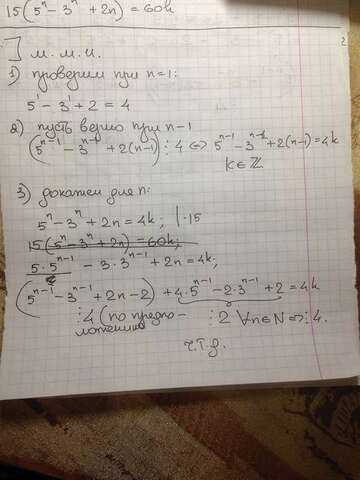 15(5ⁿ - 3ⁿ + 2n) = 60k
] м.м.и.
1) проверим при n=1:
5¹ - 3¹ + 2 = 4
2) пусть верно при n-1
(5ⁿ⁻¹ - 3ⁿ⁻¹ + 2(n-1)) ⋮ 4 ⇔ 5ⁿ⁻¹ - 3ⁿ⁻¹ + 2(n-1) = 4k
k∈ℤ
3) докажем для n:
5ⁿ - 3ⁿ + 2n = 4k; |·15
15(5ⁿ - 3ⁿ + 2n) = 60k;
5·5ⁿ⁻¹ - 3·3ⁿ⁻¹ + 2n = 4k;
(5ⁿ⁻¹ - 3ⁿ⁻¹ + 2n - 2) + 4·5ⁿ⁻¹ - 2·3ⁿ⁻¹ + 2 = 4k
⋮4 (по предпо- ⋮2 ∀n∈N ⇒ ⋮4.
ложению)
ч.т.д.